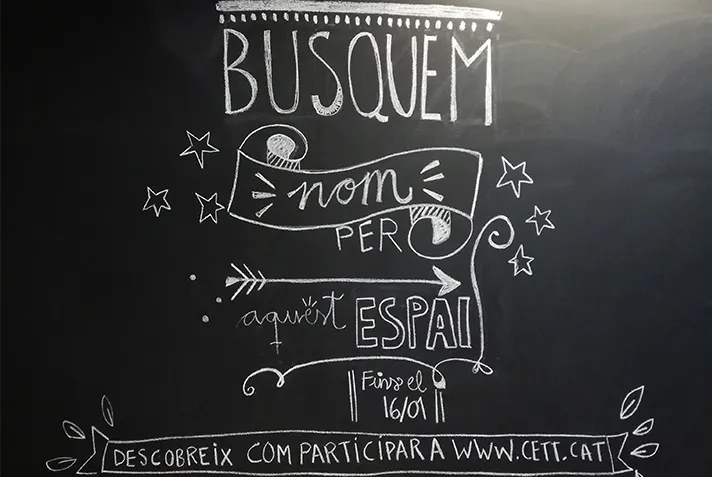 BUSQUEM
nom
PER
aquest ESPAI
Fins el
16/01
DESCOBREIX COM PARTICIPAR A WWW.CETT.CAT